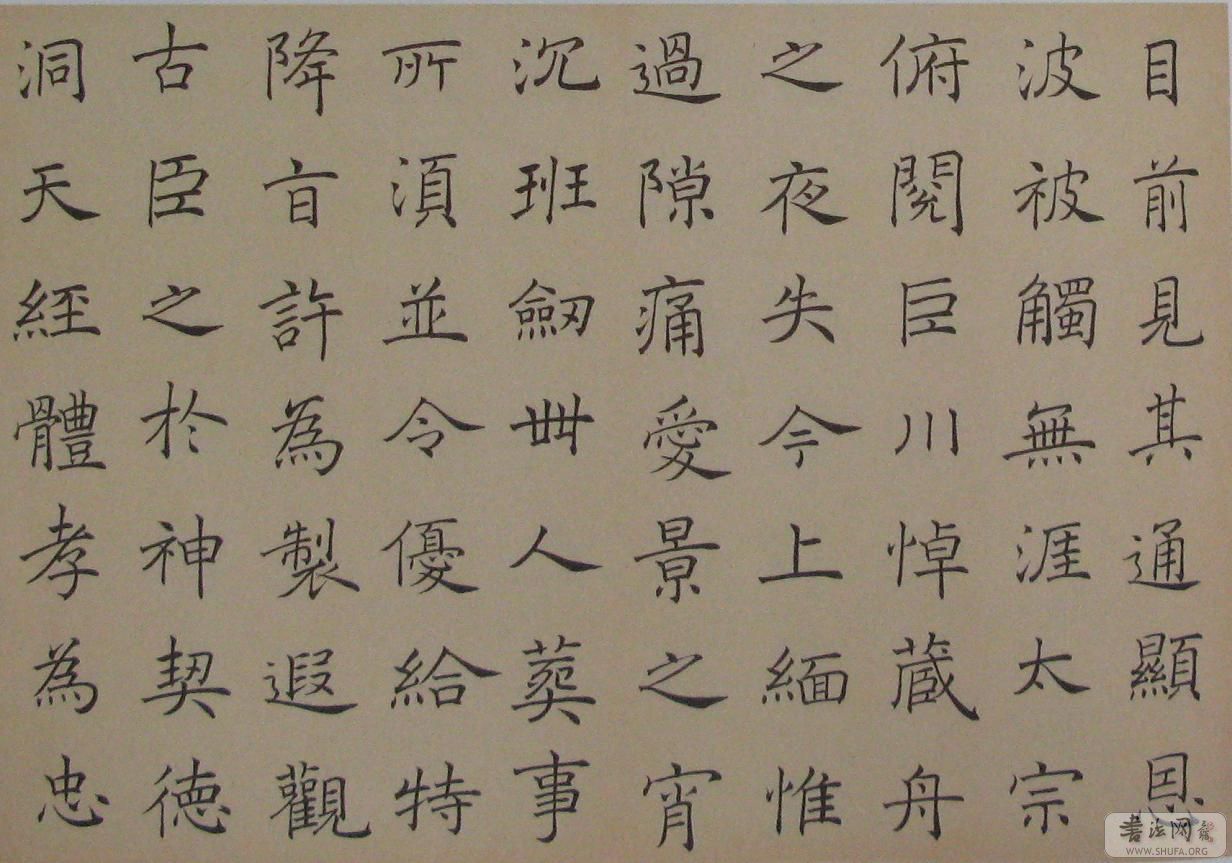 目前見其通顯恩
波被觸無涯太宗
俯閱巨川悼蔵舟
之夜失今上緬惟
過隙痛愛景之宵
沉班劒丗人葬事
所湏並令優給特
降㫖許為製遐觀
古臣之於神契徳
洞天経體孝為忠
书法网
WWW.SHUFA.ORG